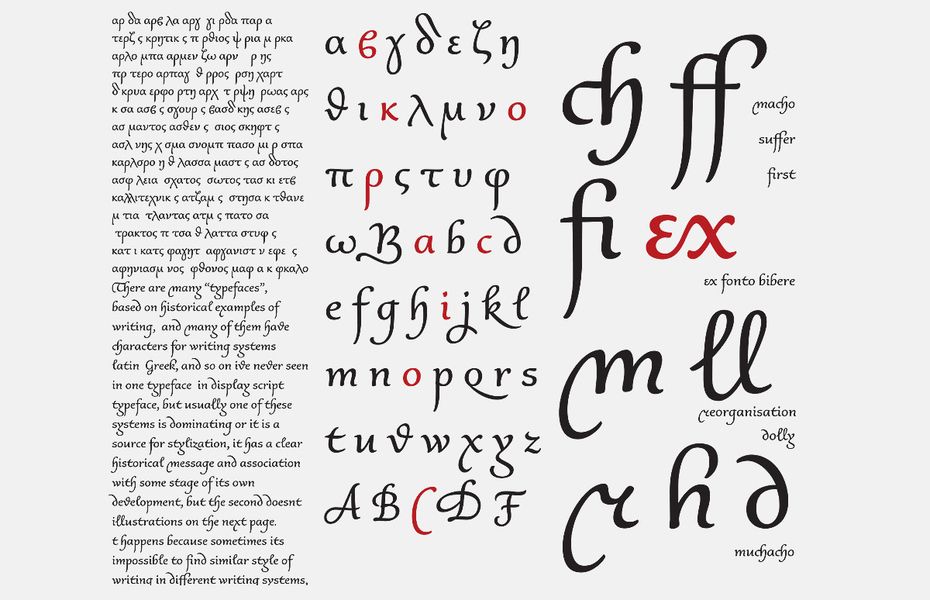 αρ δα αρϐ λα αργ γι ρδα παρ α
τερζ ς κρητικ ς π ρθιος ψ ρια μ ρκα
αρλο μπα αρμεν ζω αρν ρ ης
πρ τερο αρπαγ ϑ ρρος ρση χαρτ
δ κρυα ερφο ρτη αρχ τ ρψη ρωας αρς
κ σα ασϐ ς σγουρ ς ϐασδ κης ασεϐ ς
ασ μαντος ασθεν ς σιος σκηφτ ς
ασλ νης χ σμα σνομπ πασο μι ρ σπα
καρλσρο η ϑ λασσα μαστ ς ασ δοτος
ασφ λεια σχατος σωτος τασ κι ετϐ
καλλιτεχνικ ς ατζαμ ς στησα κ τθανε
μ τια τλαντας ατμ ς πατο σα
τρακτος π τσα ϑ λαττα στυφ ς
κατ ι κατς φαγητ αφγανιστ ν εφε ς
αφηνιασμ νος φθονος μαφ α κ φκαλο
There are many “typefaces”,
based on historical examples of
writing, and many of them have
characters for writing systems
latin Greek, and so on ive never seen
in one typeface in display script
typeface, but usually one of these
systems is dominating or it is a
source for stylization, it has a clear
historical message and association
with some stage of its own
development, but the second doesnt
illustrations on the next page.
t happens because sometimes its
impossible to find similar style of
writing in different writing systems,
α ϐ γ δ ε ζ η
ϑ ι κ λ μ ν ο
π ρ ς τ υ φ
ω B a b c d
e f g h i j k l
m n o p q r s
t u v w x y z
A B C D F
ch ff
macho
suffer
first
fi ex
ex fonto bibere
m ll
reorganisation
dolly
r h d
muchacho